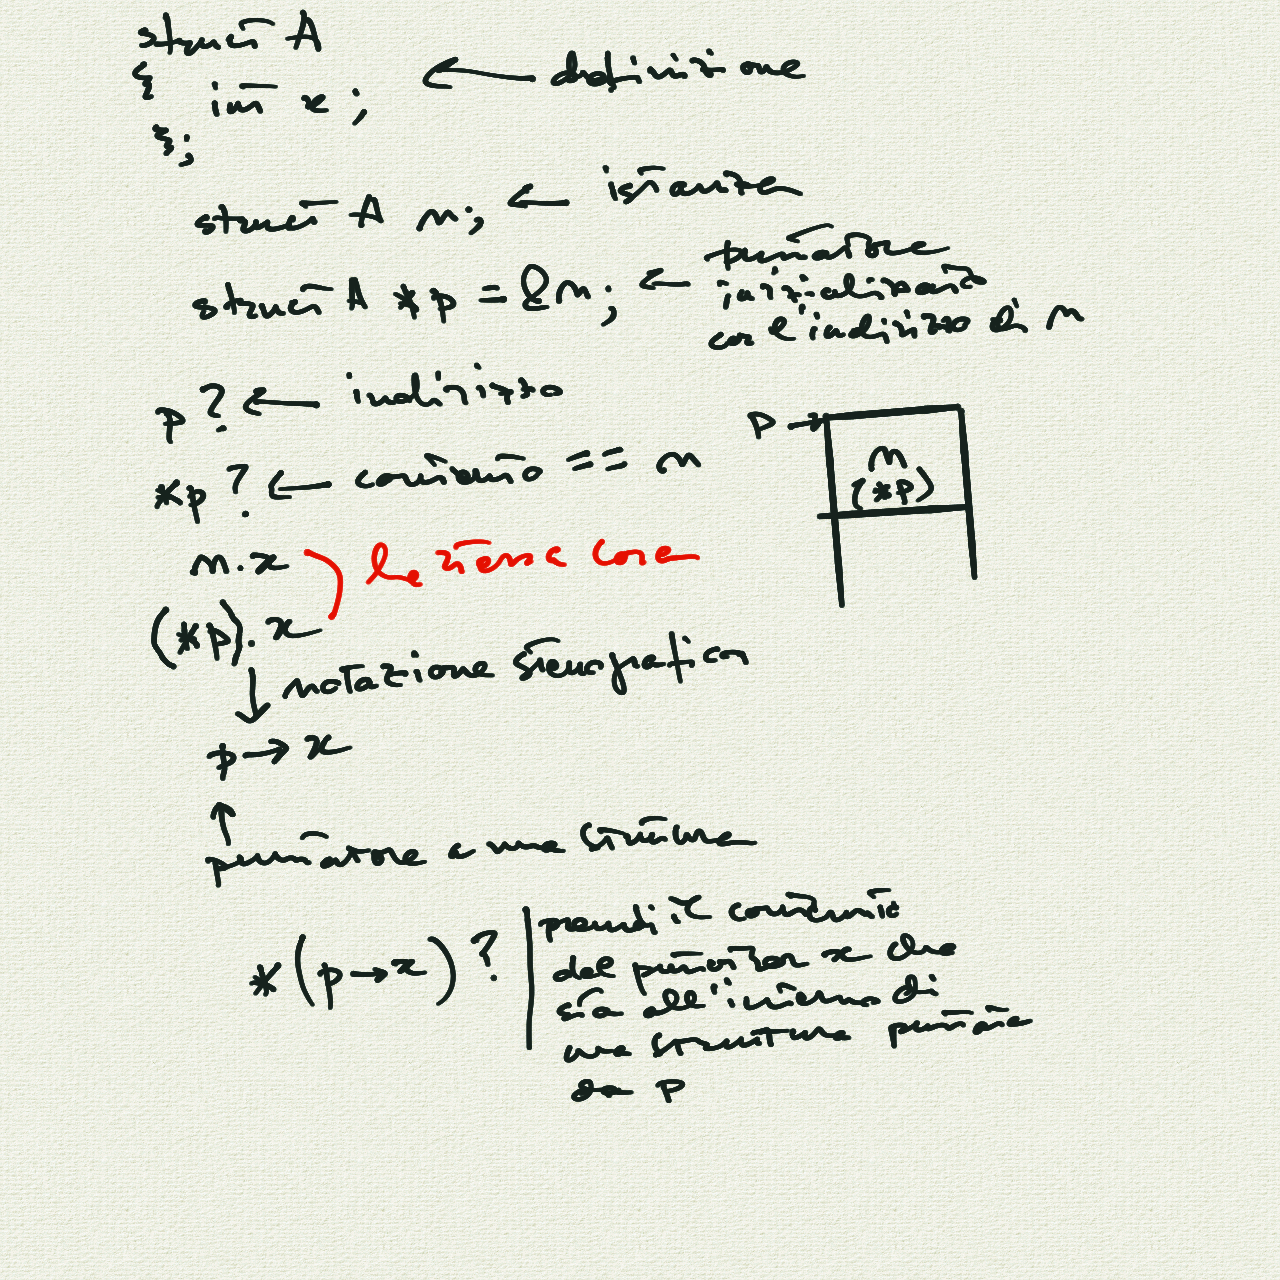 struct A
{ ← definizione
int x;
};
struct A m; ← istanza
struct A *p = &m; ← puntatore
inizializzato
con l'indirizzo di m
p ? ← indirizzo
p →
*p ? ← contenuto == m
m
(*p)
m.x
la stessa cosa
(*p).x
↓ notazione stenografica
p → x
↑
puntatore a una struttura
*(p → x) ?
prendi il contenuto
del puntatore x che
sta all'interno di
una struttura puntata
da p